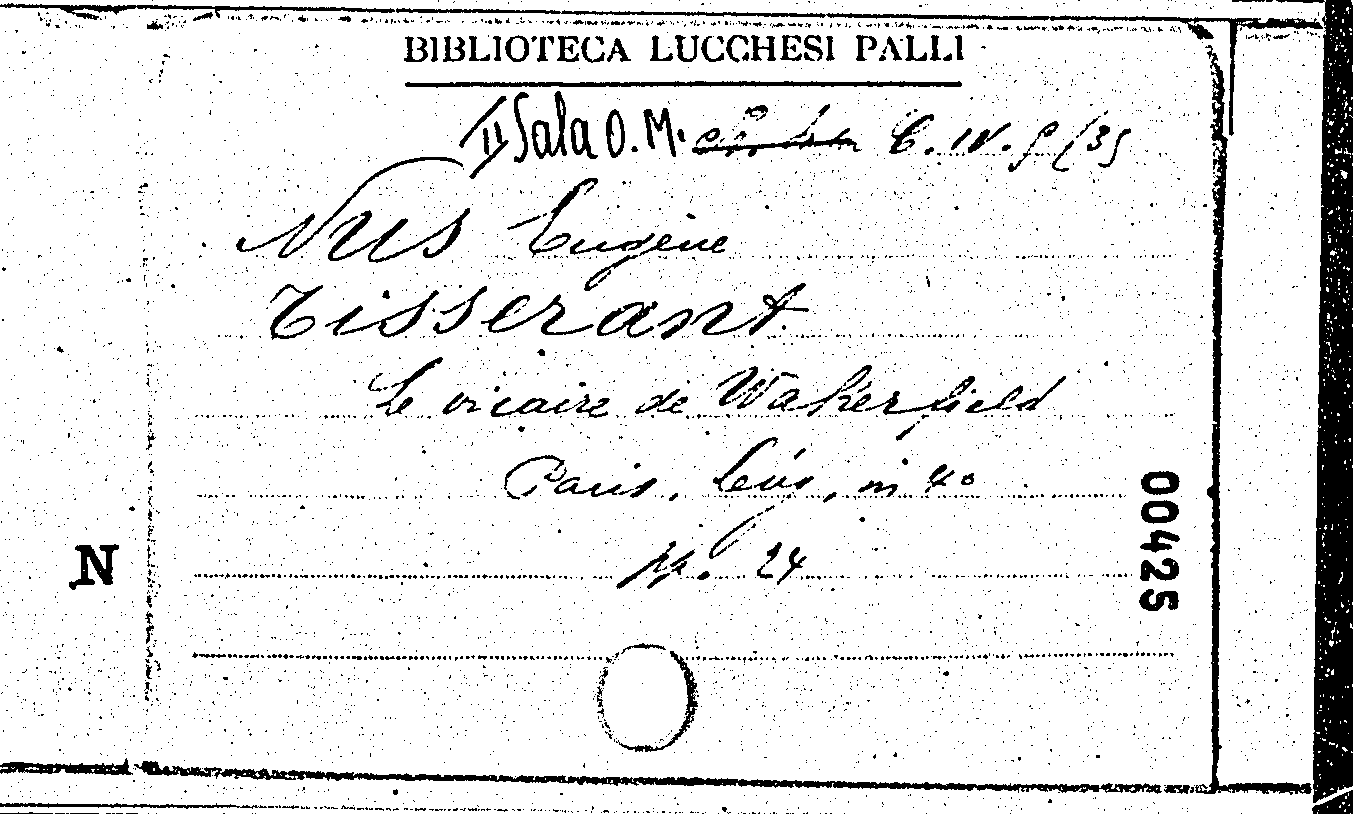 BIBLIOTECA LUCCHESI PALLI
II Sala O. M. C. IV. 9/35
Nus Eugène
Tisserant.
Le vicaire de Wakerfield
Paris, Lévy, in 4o
pp. 24
N
00425